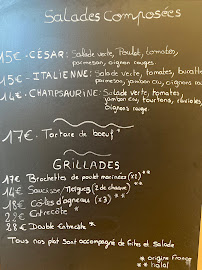 Salades Composées
15€ - CÉSAR: Salade verte, Poulet, tomates,
parmesan, oignon rouges.
15€ - ITALIENNE: Salade verte, tomates, buratta
parmesan, jambon cru, oignons rouges
14€ - CHAMPSAURINE: Salade verte, tomates,
jambon cru, tourtons, ravioles,
oignons rouge.
17€ - Tartare de boeuf *
GRILLADES
17€ Brochettes de poulet marinées (x2) **
14€ Saucisse/Merguez (2 de chaque) **
18€ Côtes d'agneau (x3) * **
Entrecôte *
28€ Double Entrecôte *
Tous nos plat Sont accompagné de frites et Salade
* origine France
** halal